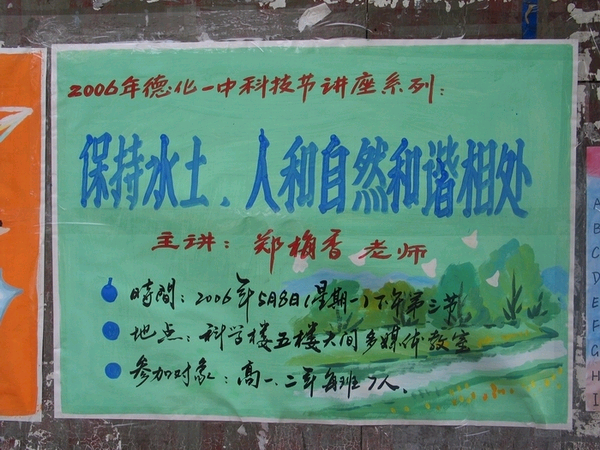 2006年德化一中科技节讲座系列:
保持水土、人和自然和谐相处
主讲: 郑梅香 老师
時間: 2006年5月8日(星期一)下午第三节
地点: 科学楼五楼大间多媒体教室
参加对象: 高一、二年每班7人.
A
B
C
D
E
F
G
H
I